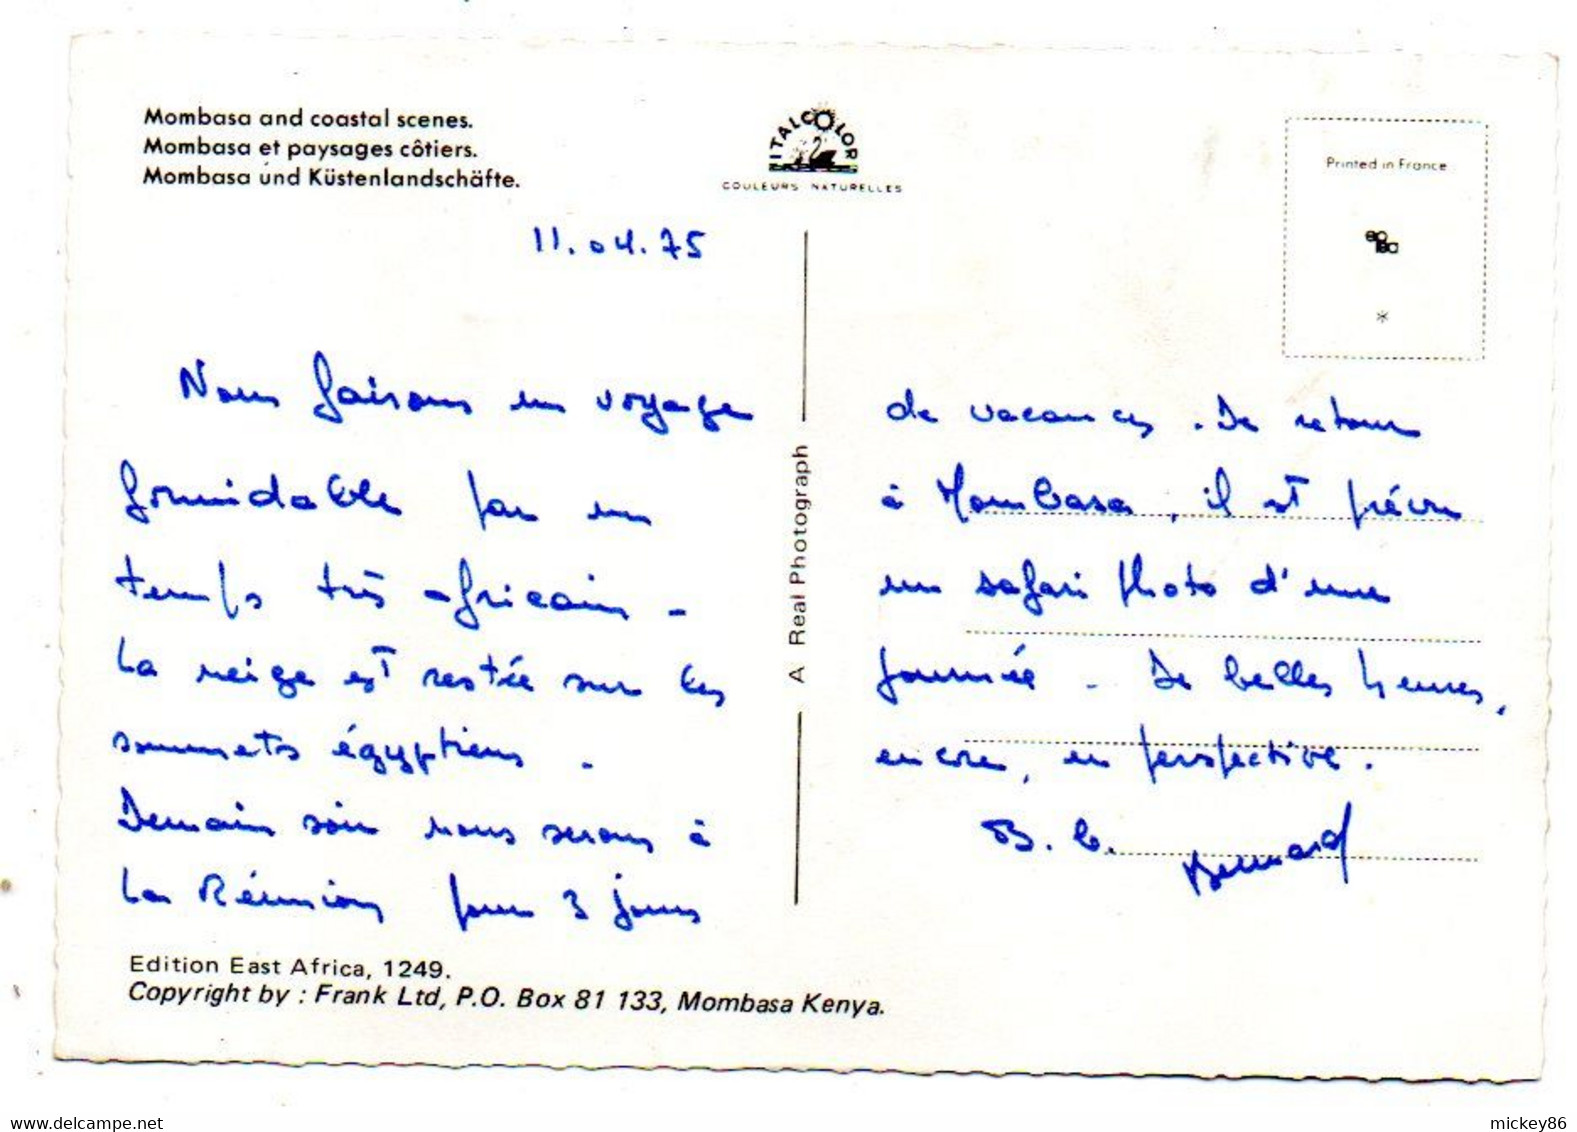 Mombasa and coastal scenes.
Mombasa et paysages côtiers.
Mombasa und Küstenlandschäfte.
ITALCOLOR
COULEURS NATURELLES
Printed in France
*
11.04.75
Nous faisons un voyage
formidable par un
temps très africain -
La neige est restée sur les
sommets égyptiens .
Demain soir nous serons à
La Réunion pour 3 jours
A Real Photograph
de vacances . De retour
à Mombasa, il est prévu
un safari photo d'une
journée - De belles heures,
encore, en perspective.
B. C.
Bernard
Edition East Africa, 1249.
Copyright by : Frank Ltd, P.O. Box 81 133, Mombasa Kenya.
www.delcampe.net
mickey86